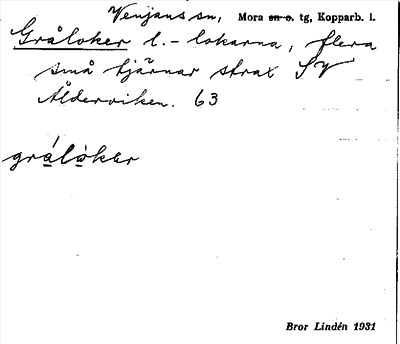 Venjans sn, Mora sn o. tg, Kopparb. l.
Gråloker l. -lokarna, flera
små tjärnar strax SV
Ålderviken. 63
grálòker
Bror Lindén 1931